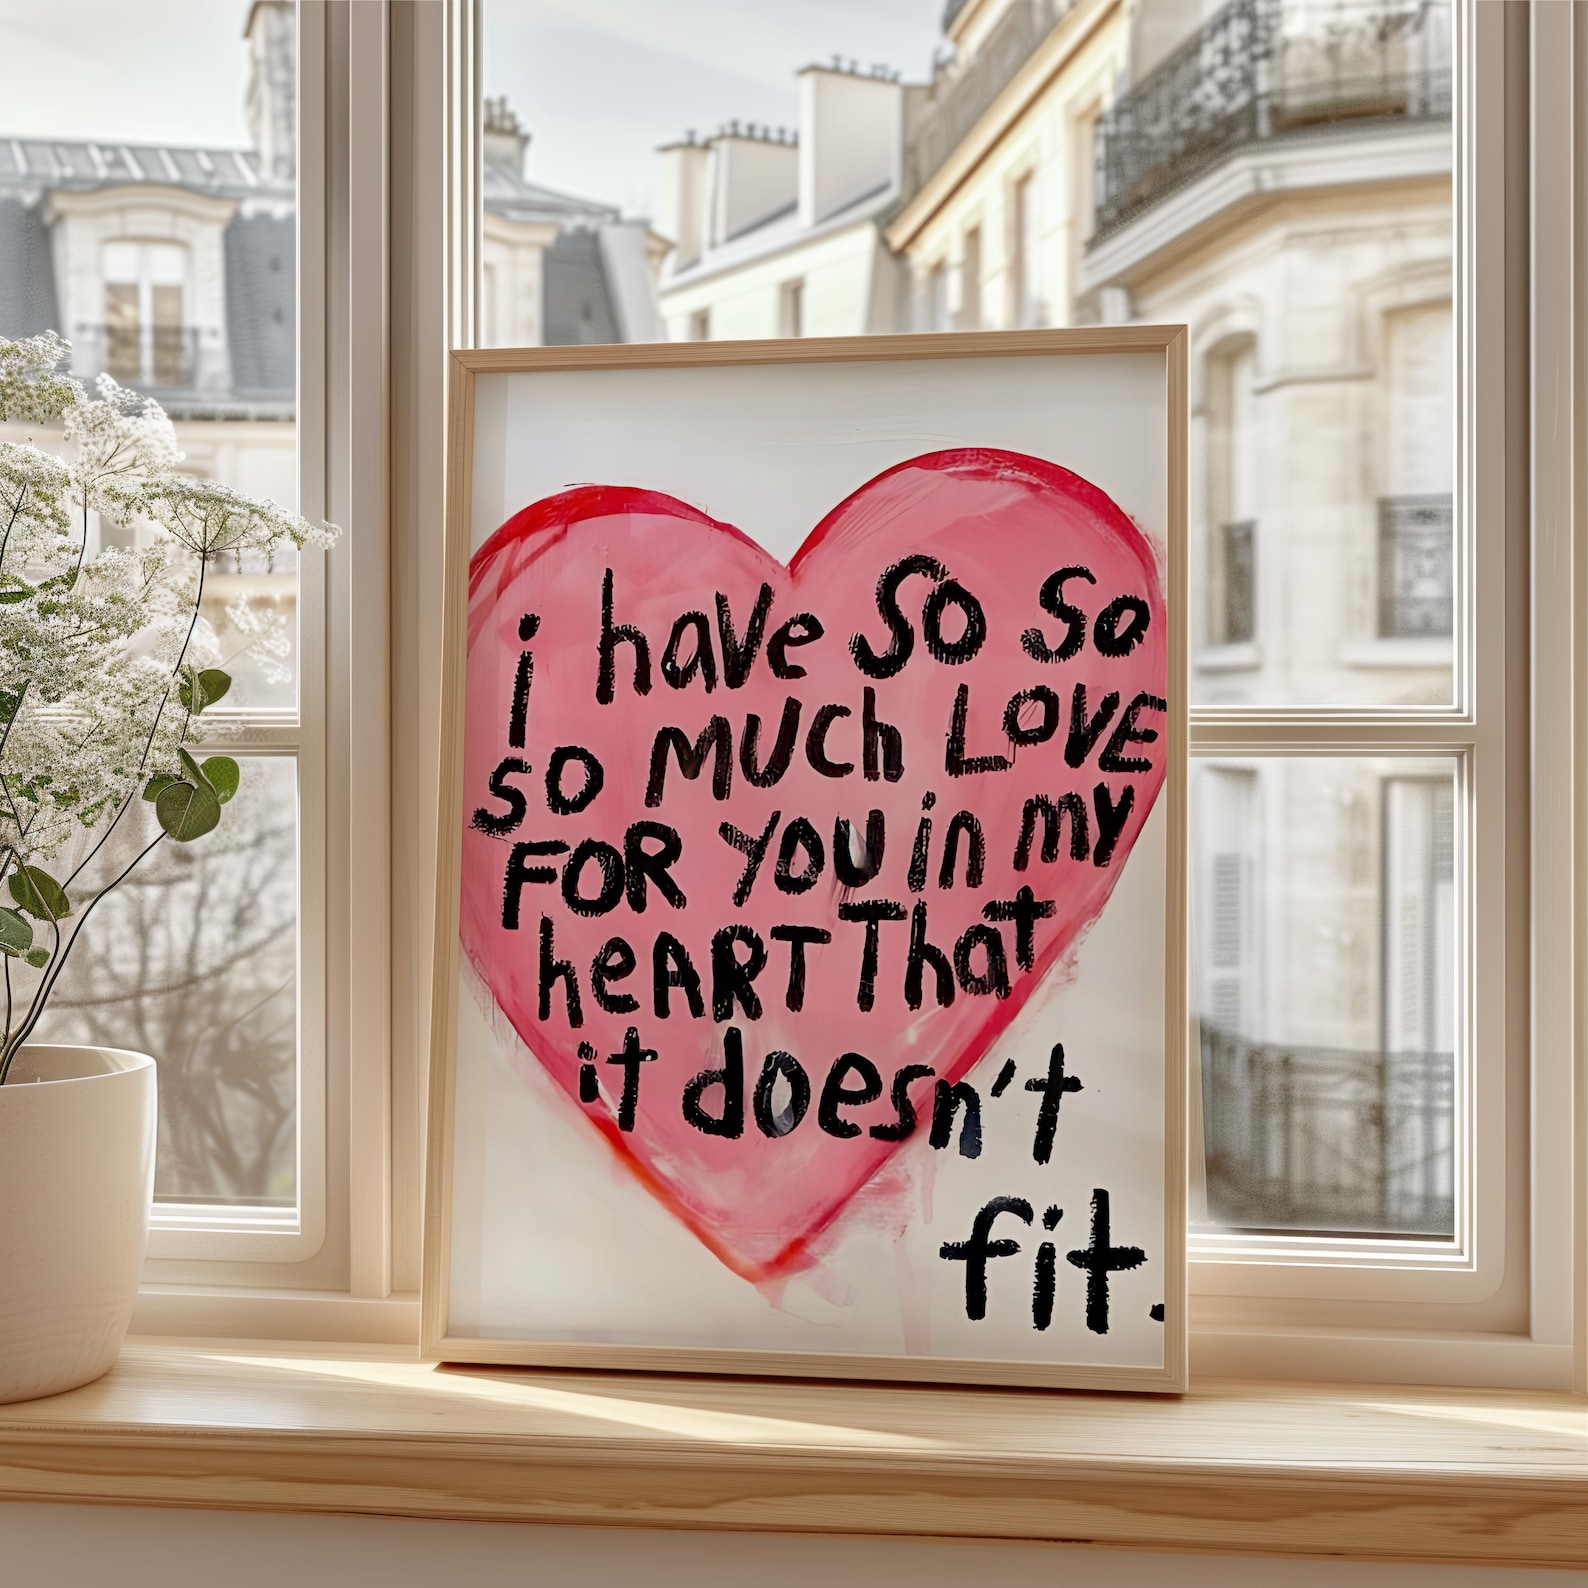 i have So So
so MUCh LOVE
FOR YOU in my
heART That
it doesn't
fit.